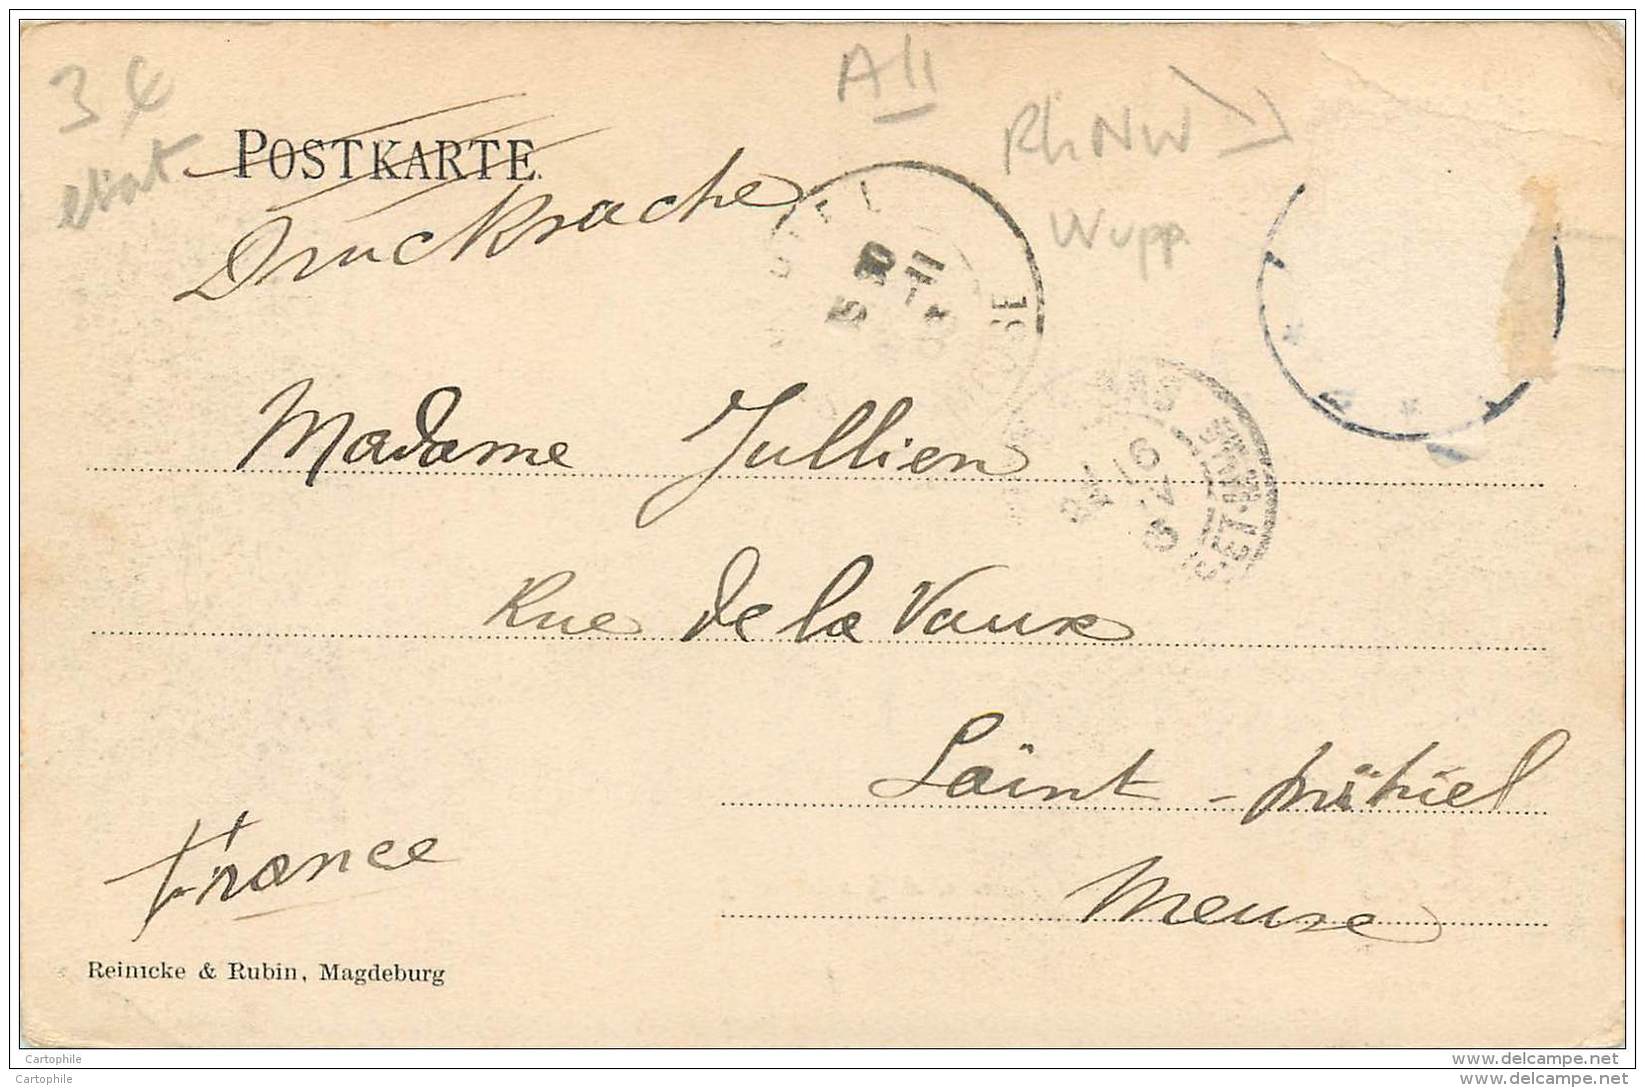 3 €
état
All
Rh NW
Wupp.
POSTKARTE
Drucksache
Madame Jullien
Rue de la Vaux
Saint-Mihiel
Meuse
France
Reinicke & Rubin, Magdeburg
Cartophile
www.delcampe.net
Cartophile
www.delcampe.net